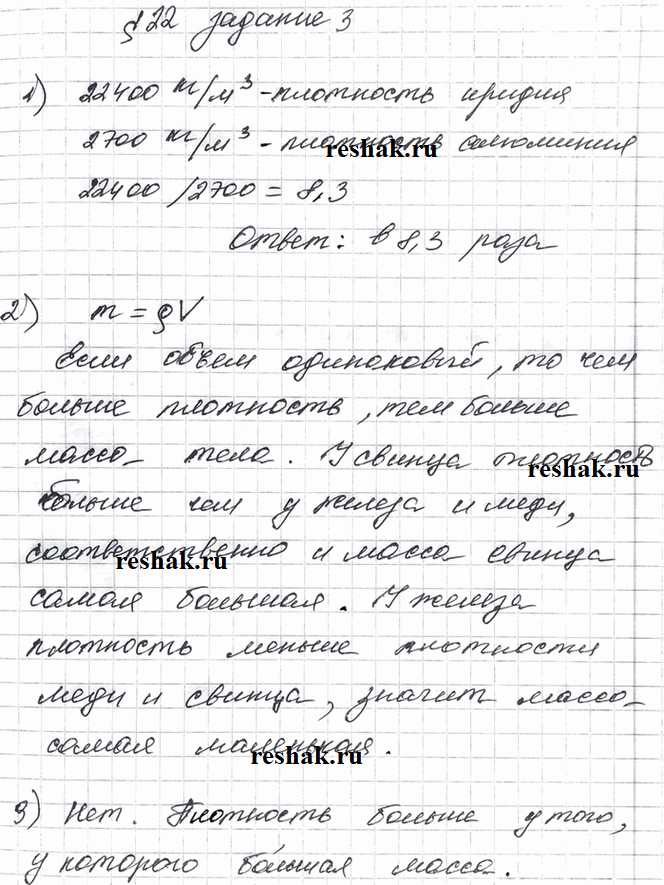 § 22 задание 3
1) 22400 кг/м³ - плотность иридия
2700 кг/м³ - плотность алюминия
reshak.ru
22400 / 2700 = 8,3
Ответ: в 8,3 раза
2) m = ρV
Если объем одинаковый, то чем
больше плотность, тем больше
масса тела. У свинца плотность
reshak.ru
больше чем у железа и меди,
соответственно и масса свинца
reshak.ru
самая большая. У железа
плотность меньше плотности
меди и свинца, значит масса
самая маленькая.
reshak.ru
3) Нет. Плотность больше у того,
у которого бóльшая масса.